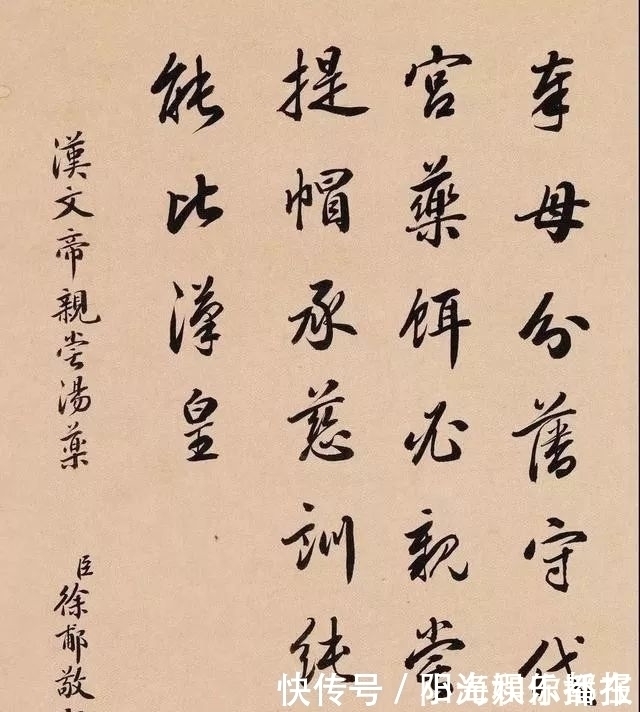 奉母分藩守代
宮藥餌必親嘗
提帽承慈訓純
能比漢皇
漢文帝親嘗湯藥
臣徐郙敬
快传号 / 阳海娱乐播报